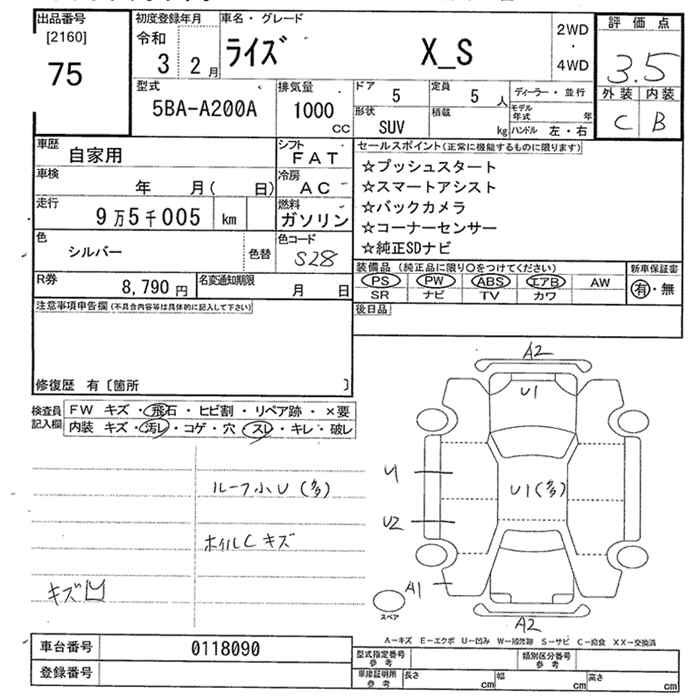 出品番号
[2160]
75
初度登録年月
令和
3 2月
車名・グレード
ライズ X_S
2WD
・
4WD
評価点
3.5
外装 内装
C B
型式
5BA-A200A
排気量
1000
CC
ドア
5
定員
5人
形状
SUV
積載
kg
ディーラー・並行
モデル年式 年
ハンドル 左・右
車歴
自家用
シフト
FAT
車検
年 月( 日)
冷房
AC
走行
9万5千005 km
燃料
ガソリン
色
シルバー
色替
色コード
S28
R券
8,790円
名変通知期限
月 日
セールスポイント(正常に機能するものに限ります)
☆プッシュスタート
☆スマートアシスト
☆バックカメラ
☆コーナーセンサー
☆純正SDナビ
装備品(純正品に限り○をつけてください)
新車保証書
PS PW ABS エアB AW
有・無
SR ナビ TV カワ
後日品
注意事項申告欄(不具合内容等は具体的に記入して下さい)
修復歴 有〔箇所 〕
検査員
記入欄
FW キズ・飛石・ヒビ割・リペア跡・×要
内装 キズ・汚レ・コゲ・穴・スレ・キレ・破レ
ルーフ小U(多)
ホイルCキズ
キズ凹
A2
U1
U1(多)
U2
A1
スペア
A2
A-キズ E-エクボ U-凹み W-補修跡 S-サビ C-腐食 XX-交換済
車台番号
0118090
登録番号
型式指定番号
参考
類別区分番号
参考
車庫証明所
参考
長さ cm
幅 cm
高さ cm